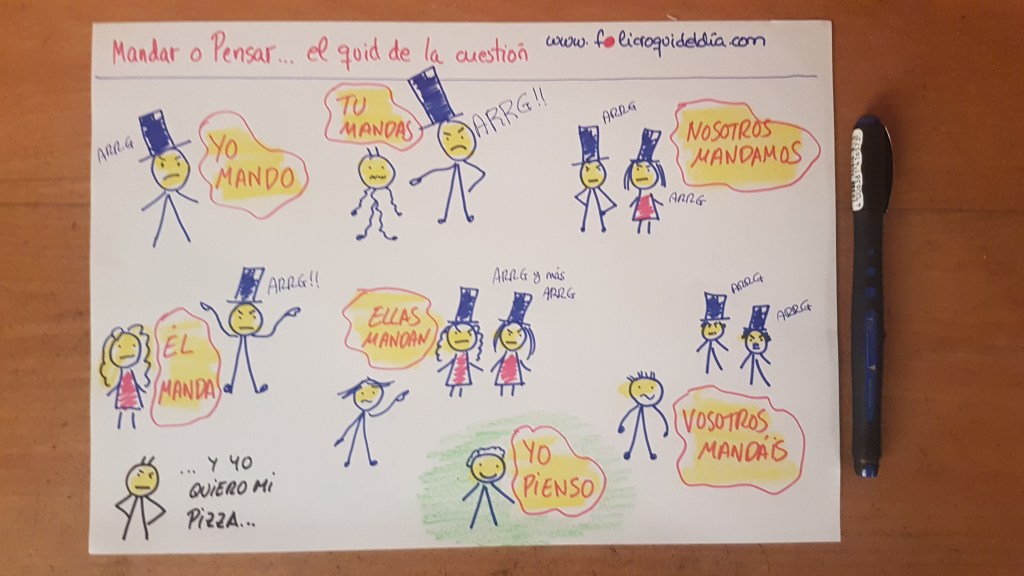 Mandar o Pensar... el quid de la cuestión
www.folicroquideldia.com
ARRG
YO
MANDO
TU
MANDAS
ARRG!!
ARRG
ARRG
NOSOTROS
MANDAMOS
ÉL
MANDA
ARRG!!
ELLAS
MANDAN
ARRG y más
ARRG
ARRG
ARRG
VOSOTROS
MANDÁIS
... Y YO
QUIERO MI
PIZZA...
YO
PIENSO